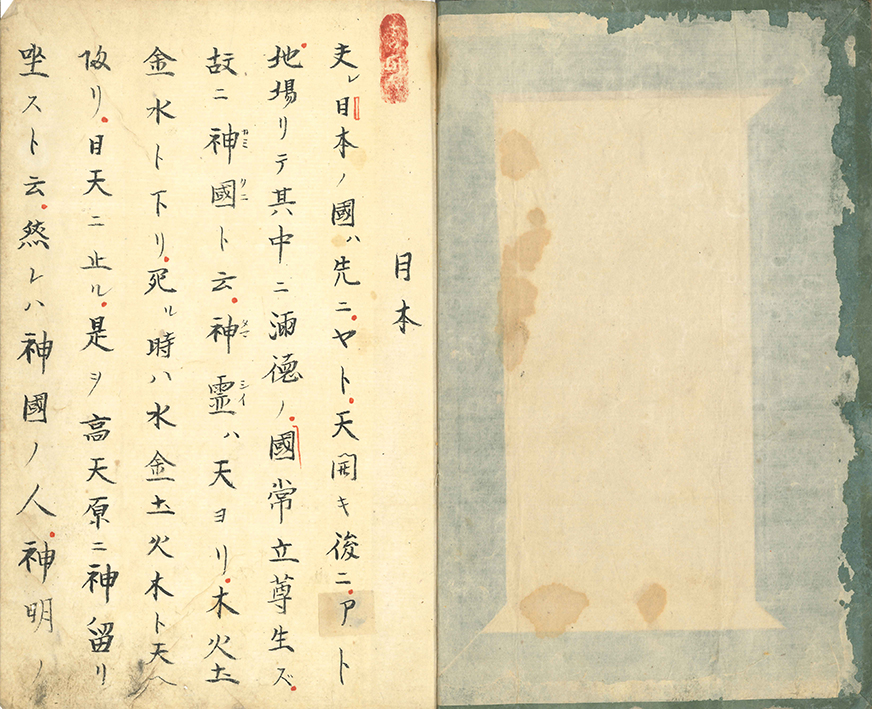 日本
夫レ日本ノ國ハ先ニヤト天開キ後ニアト
地場リテ其中ニ滿德ノ國常立尊生ズ
故ニ神國ト云神霊ハ天ヨリ木火土
金水ト下リ死ル時ハ水金土火木ト天ヘ
皈リ日天ニ止ル是ヲ高天原ニ神留リ
坐スト云然レハ神國ノ人神明ノ